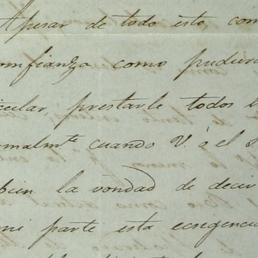 Apesar de todo esto com
confianza como pudier
ticular prestarle todos
malmte cuando V. ó el S
bien la vondad de decir
mi parte esta ecsigencia